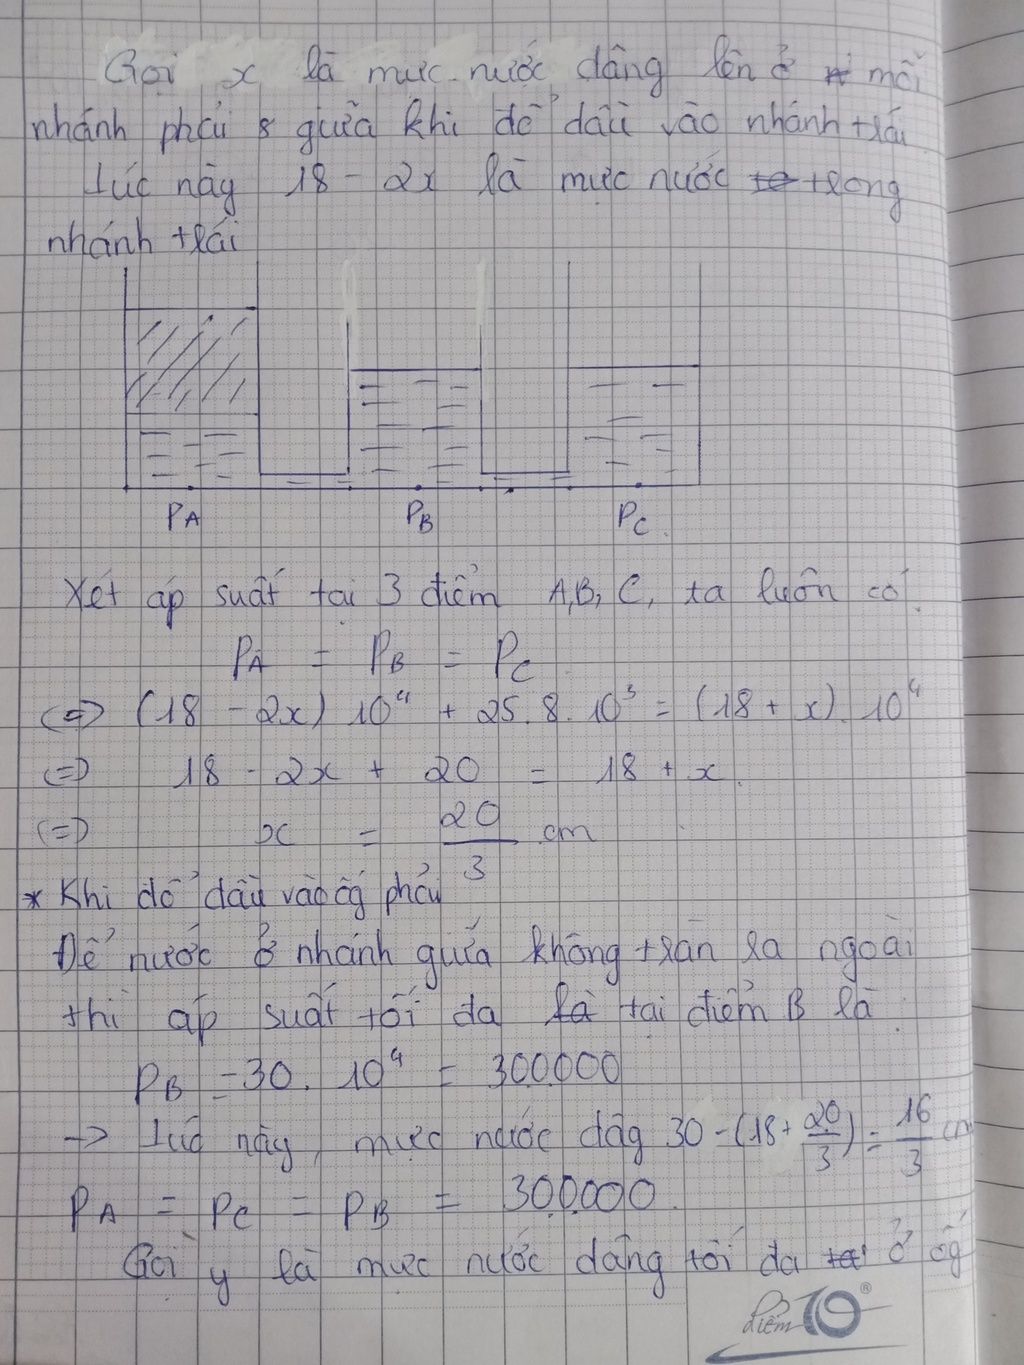 Gọi x là mực nước dâng lên ở mỗi
nhánh phải & giữa khi đổ dầu vào nhánh trái
lúc này 18 - 2x là mực nước trong
nhánh trái
PA PB PC
Xét áp suất tại 3 điểm A, B, C, ta luôn có
PA = PB = PC
(=) (18 - 2x) 10⁴ + 25. 8. 10³ = (18 + x). 10⁴
(=) 18 - 2x + 20 = 18 + x.
(=) x = 20/3 cm
* Khi đổ dầu vào ốg phải
Để nước ở nhánh giữa không tràn ra ngoài
thì áp suất tối đa tại điểm B là
PB = 30. 10⁴ = 300000
-> lúc này, mực nước dâg 30 - (18 + 20/3) = 16/3 cm
PA = PC = PB = 300000.
Gọi y là mực nước dâng tối đa ở ốg
điểm 10 ®